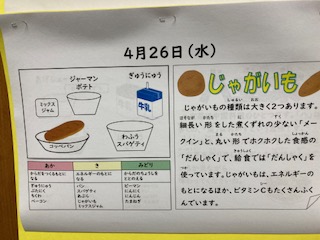 4月26日(水)
ジャーマン
ポテト
ぎゅうにゅう
ミックス
ジャム
牛乳
コッペパン
わふう
スパゲティ
あか
き
みどり
からだをつくるもとに
なる
エネルギーのもとに
なる
からだのちょうしを
ととのえる
ぎゅうにゅう
ぶたにく
ちくわ
ベーコン
パン
スパゲティ
あぶら
じゃがいも
ミックスジャム
ピーマン
にんじん
たまねぎ
じゃがいも
じゃがいもの種類は大きく2つあります。
細長い形をした煮くずれの少ない「メー
クイン」と、丸い形でホクホクした食感の
「だんしゃく」で、給食では「だんしゃく」を
使っています。じゃがいもは、エネルギーの
もとになるほか、ビタミンCもたくさんふく
んでいます。